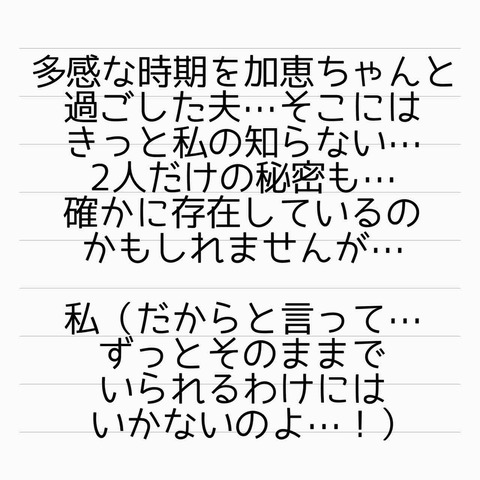 多感な時期を加恵ちゃんと
過ごした夫…そこには
きっと私の知らない…
2人だけの秘密も…
確かに存在しているの
かもしれませんが…
私（だからと言って…
ずっとそのままで
いられるわけには
いかないのよ…！）